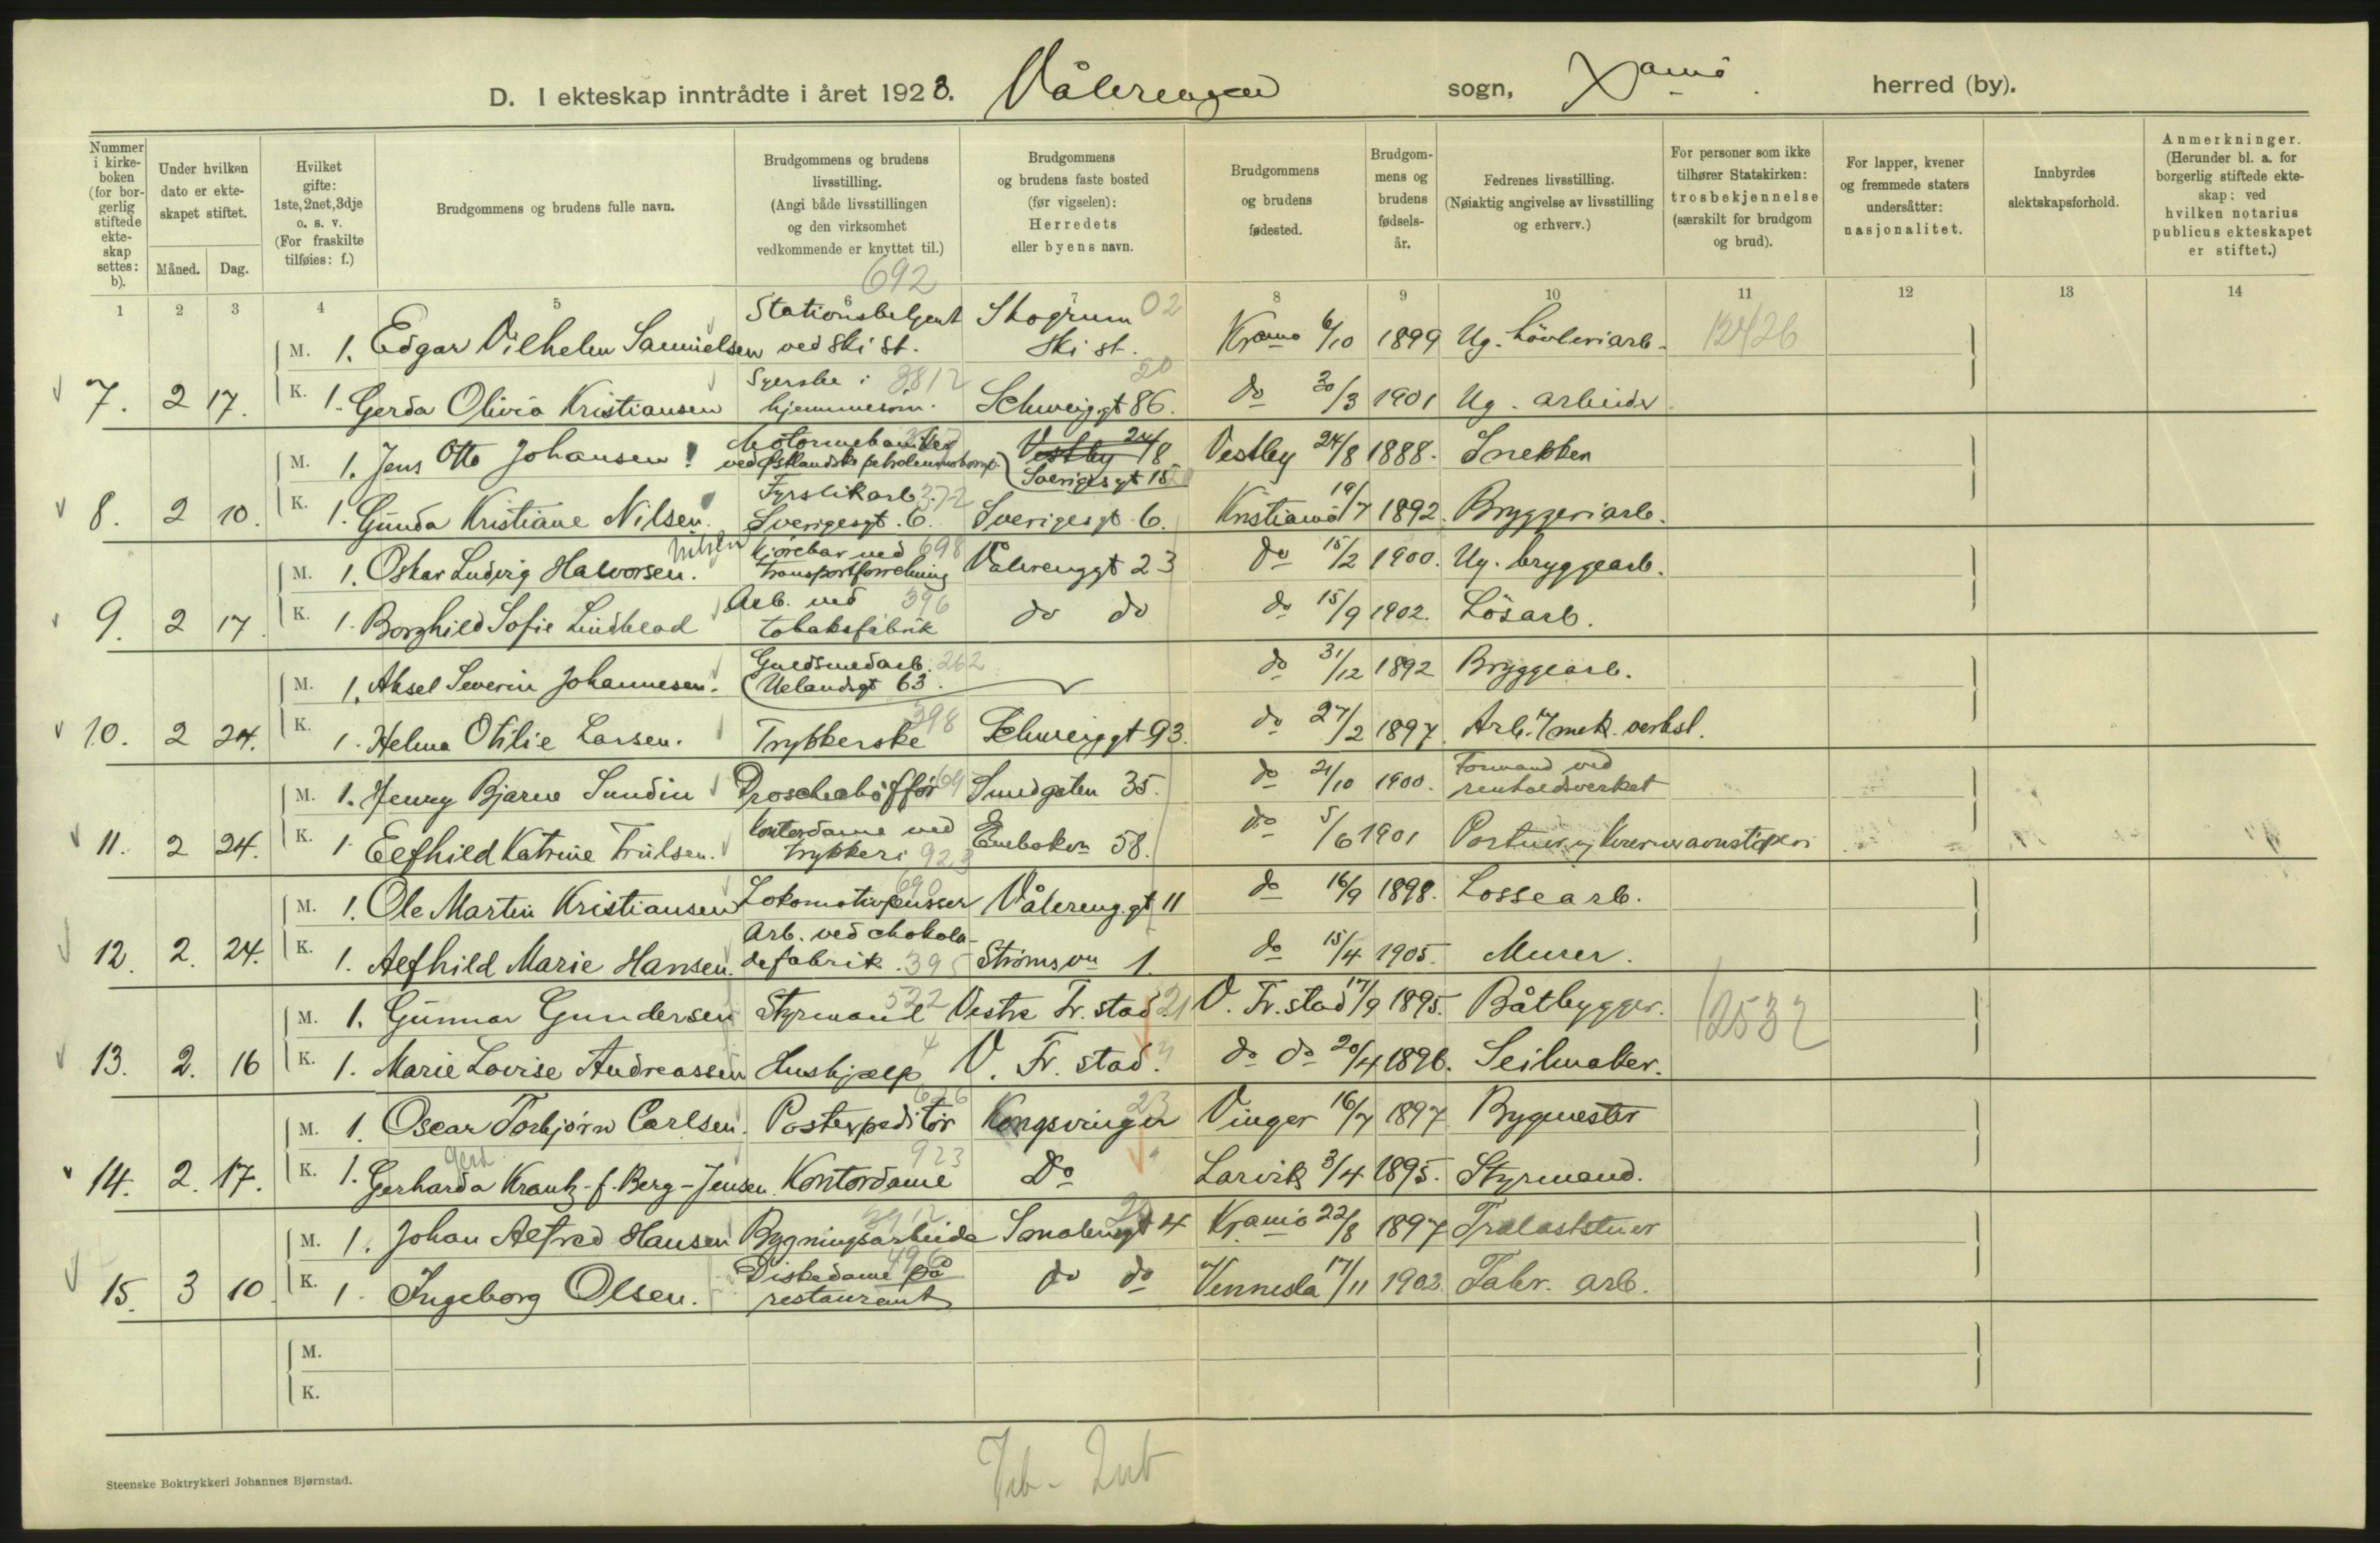 D. I ekteskap inntrådte i året 1923. Vålerengen sogn, Xania herred (by).
Nummer i kirke-boken (for bor-gerlig stiftede ekte-skap settes: b).
Under hvilken dato er ekte-skapet stiftet.
Måned. Dag.
Hvilket gifte: 1ste, 2net, 3dje o. s. v. (For fraskilte tilføies: f.)
Brudgommens og brudens fulle navn.
Brudgommens og brudens livsstilling. (Angi både livsstillingen og den virksomhet vedkommende er knyttet til.)
Brudgommens og brudens faste bosted (før vigselen): Herredets eller byens navn.
Brudgommens og brudens fødested.
Brudgom-mens og brudens fødsels-år.
Fedrenes livsstilling. (Nøiaktig angivelse av livsstilling og erhverv.)
For personer som ikke tilhører Statskirken: trosbekjennelse (særskilt for brudgom og brud).
For lapper, kvener og fremmede staters undersåtter: nasjonalitet.
Innbyrdes slektskapsforhold.
Anmerkninger. (Herunder bl. a. for borgerlig stiftede ekte-skap: ved hvilken notarius publicus ekteskapet er stiftet.)
1 2 3 4 5 6 7 8 9 10 11 12 13 14
M. 1. Edgar Vilhelm Samuelsen Stationsbetjent ved Ski st. 692 Skogrum Ski st. 02 Kr.ania 6/10 1899 Ug. Løvleriarb. 12426
7. 2 17. K. 1. Gerda Olivia Kristiansen Syerske i hjemmesøm. 3812 Schweiggt 86. 20 do 20/3 1901 Ug. arbeider
M. 1. Jens Otto Johansen ved Østlandske petroleumskomp. Vestby 24/8 Sverigesgt 15 Vestby 24/8 1888. Snekker
8. 2 10. K. 1. Gunda Kristiane Nilsen. Fyrstikarb. 372 Sverigesgt. 6. Sverigesgt. 6. Kristiania 19/7 1892. Bryggeriarb.
M. 1. Oskar Ludvig Halvorsen. Nilsen Kjørekar ved transportforretning 698 Vålerenggt 23 do 15/2 1900. Ug. bryggearb.
9. 2 17. K. 1. Borghild Sofie Lindblad Arb. ved tobaksfabrik 396 do do do 15/9 1902. Løsarb.
M. 1. Aksel Severin Johannesen. Guldsmedarb. 262 Uelandsgt 63. do 31/12 1892 Bryggearb.
10. 2 24. K. 1. Helma Otilie Larsen. Trykkerske 398 Schweiggt 93. do 27/2 1897. Arb. v/ mek. verkst.
M. 1. Henry Bjarne Sundin Droschechåffør Smedgaten 35. do 21/10 1900. Formand ved renholdsverket
11. 2 24. K. 1. Elfhild Katrine Trulsen. Kontordame ved trykkeri 923 Enebakvn 58. do 5/6 1901
M. 1. Ole Martin Kristiansen Lokomotivpusser 690 Vålereng.gt 11 do 16/9 1898. Lossearb.
12. 2. 24. K. 1. Alfhild Marie Hansen. Arb. ved chokola-defabrik. 395 Strømsvn 1. do 15/4 1905. Murer.
M. 1. Gunnar Gundersen Styrmand 522 Vestre Fr. stad. 21 V. Fr. stad 17/9 1895. Båtbygger. 12532
13. 2. 16 K. 1. Marie Lovise Andreassen Hushjælp 4 V. Fr. stad. do do 20/4 1896. Seilmaker.
M. 1. Oscar Torbjørn Carlsen. Postexpeditør 626 Kongsvinger 23 Vinger 16/7 1897 Bygmester
14. 2. 17. K. 1. Gerharda Krantz-f. Berg-Jensen. Gerd Kontordame 923 Do Larvik 3/4 1895. Styrmand.
M. 1. Johan Alfred Hansen Bygningsarbeide Smålensgt 4 20 Kr.ania 22/8 1897 Trælasttuer
15. 3 10 K. 1. Ingeborg Olsen. Diskedame på restaurant 496 do do Vennesla 17/11 1902. Fabr. arb.
M.
K.
Steenske Boktrykkeri Johannes Bjørnstad.